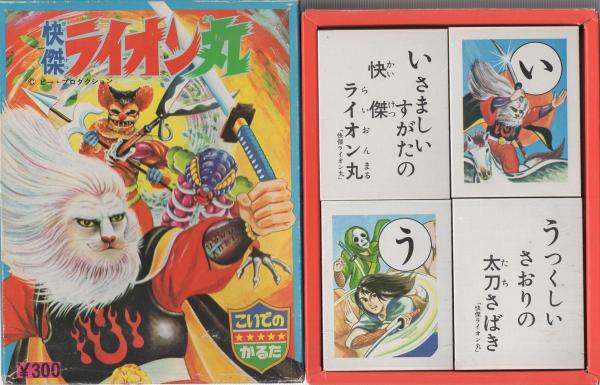 快傑
ライオン丸
© ピー・プロダクション
こいでの
かるた
¥300
いさましい
すがたの
快傑
かいけつ
ライオン丸
らいおんまる
「快傑ライオン丸」
い
う
うつくしい
さおりの
太刀さばき
たち
「快傑ライオン丸」